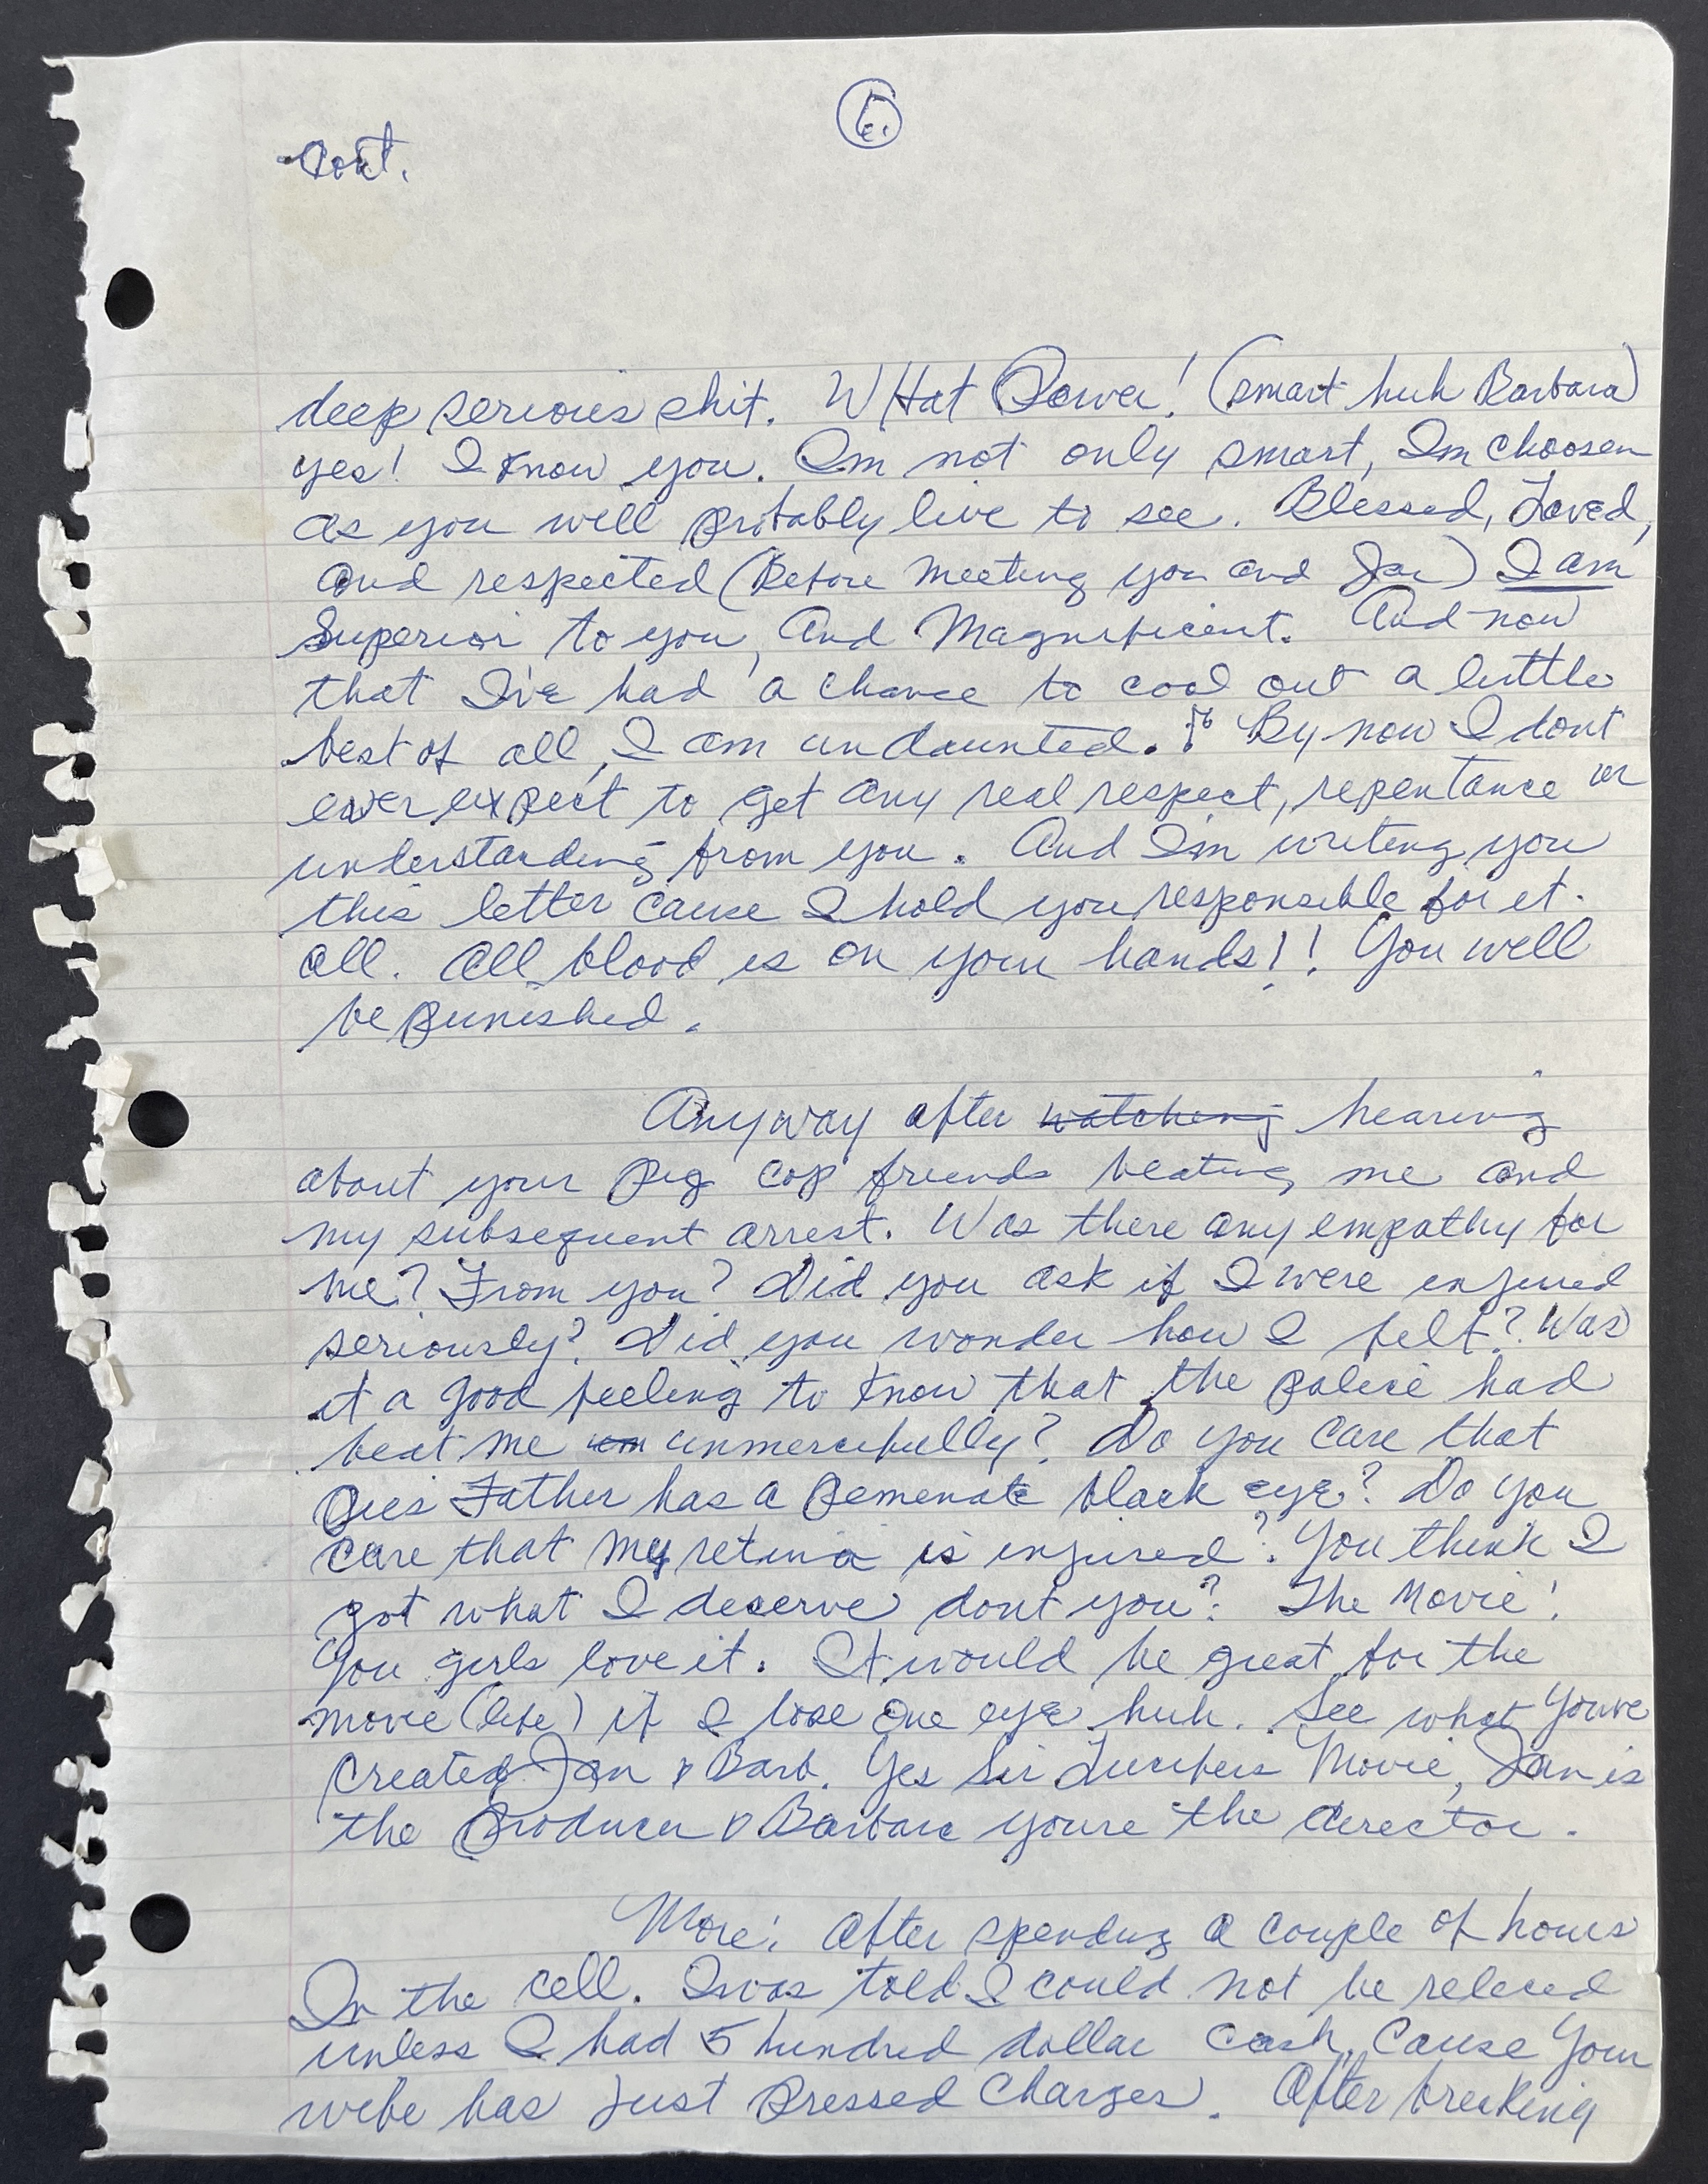 6.
cont.
deep serious shit. WHat Power! (smart huh Barbara)
yes! I know you. Im not only smart, Im choosen
as you will probably live to see. Blessed, Loved,
and respected (Before meeting you and Jan) I am
Superior to you, And Magnificent. And now
that I've had a chance to cool out a little
best of all, I am undaunted. By now I dont
ever expect to get any real respect, repentance or
understanding from you. And Im writing you
this letter cause I hold you responsible for it.
all. All blood is on your hands!! You will
be punished.
Anyway after watching hearing
about your pig cop friends beating me and
my subsequent arrest. Was there any empathy for
me? From you? Did you ask if I were injured
seriously? Did you wonder how I felt? Was
it a good feeling to know that the police had
beat me um unmercifully? Do you care that
Gees Father has a pemenate black eye? Do you
care that my retina is injured? You think I
got what I deserve dont you? The Movie!
You girls love it. It would be great for the
movie (life) if I lose one eye huh. See what you've
created Jan & Barb. Yes Sir Lucifers Movie, Jan is
the Producer & Barbara youre the director.
More! After spending a couple of hours
In the cell. I was told I could not be relesed
unless I had 5 hundred dollar cash, Cause your
wife has just pressed charges. After breaking